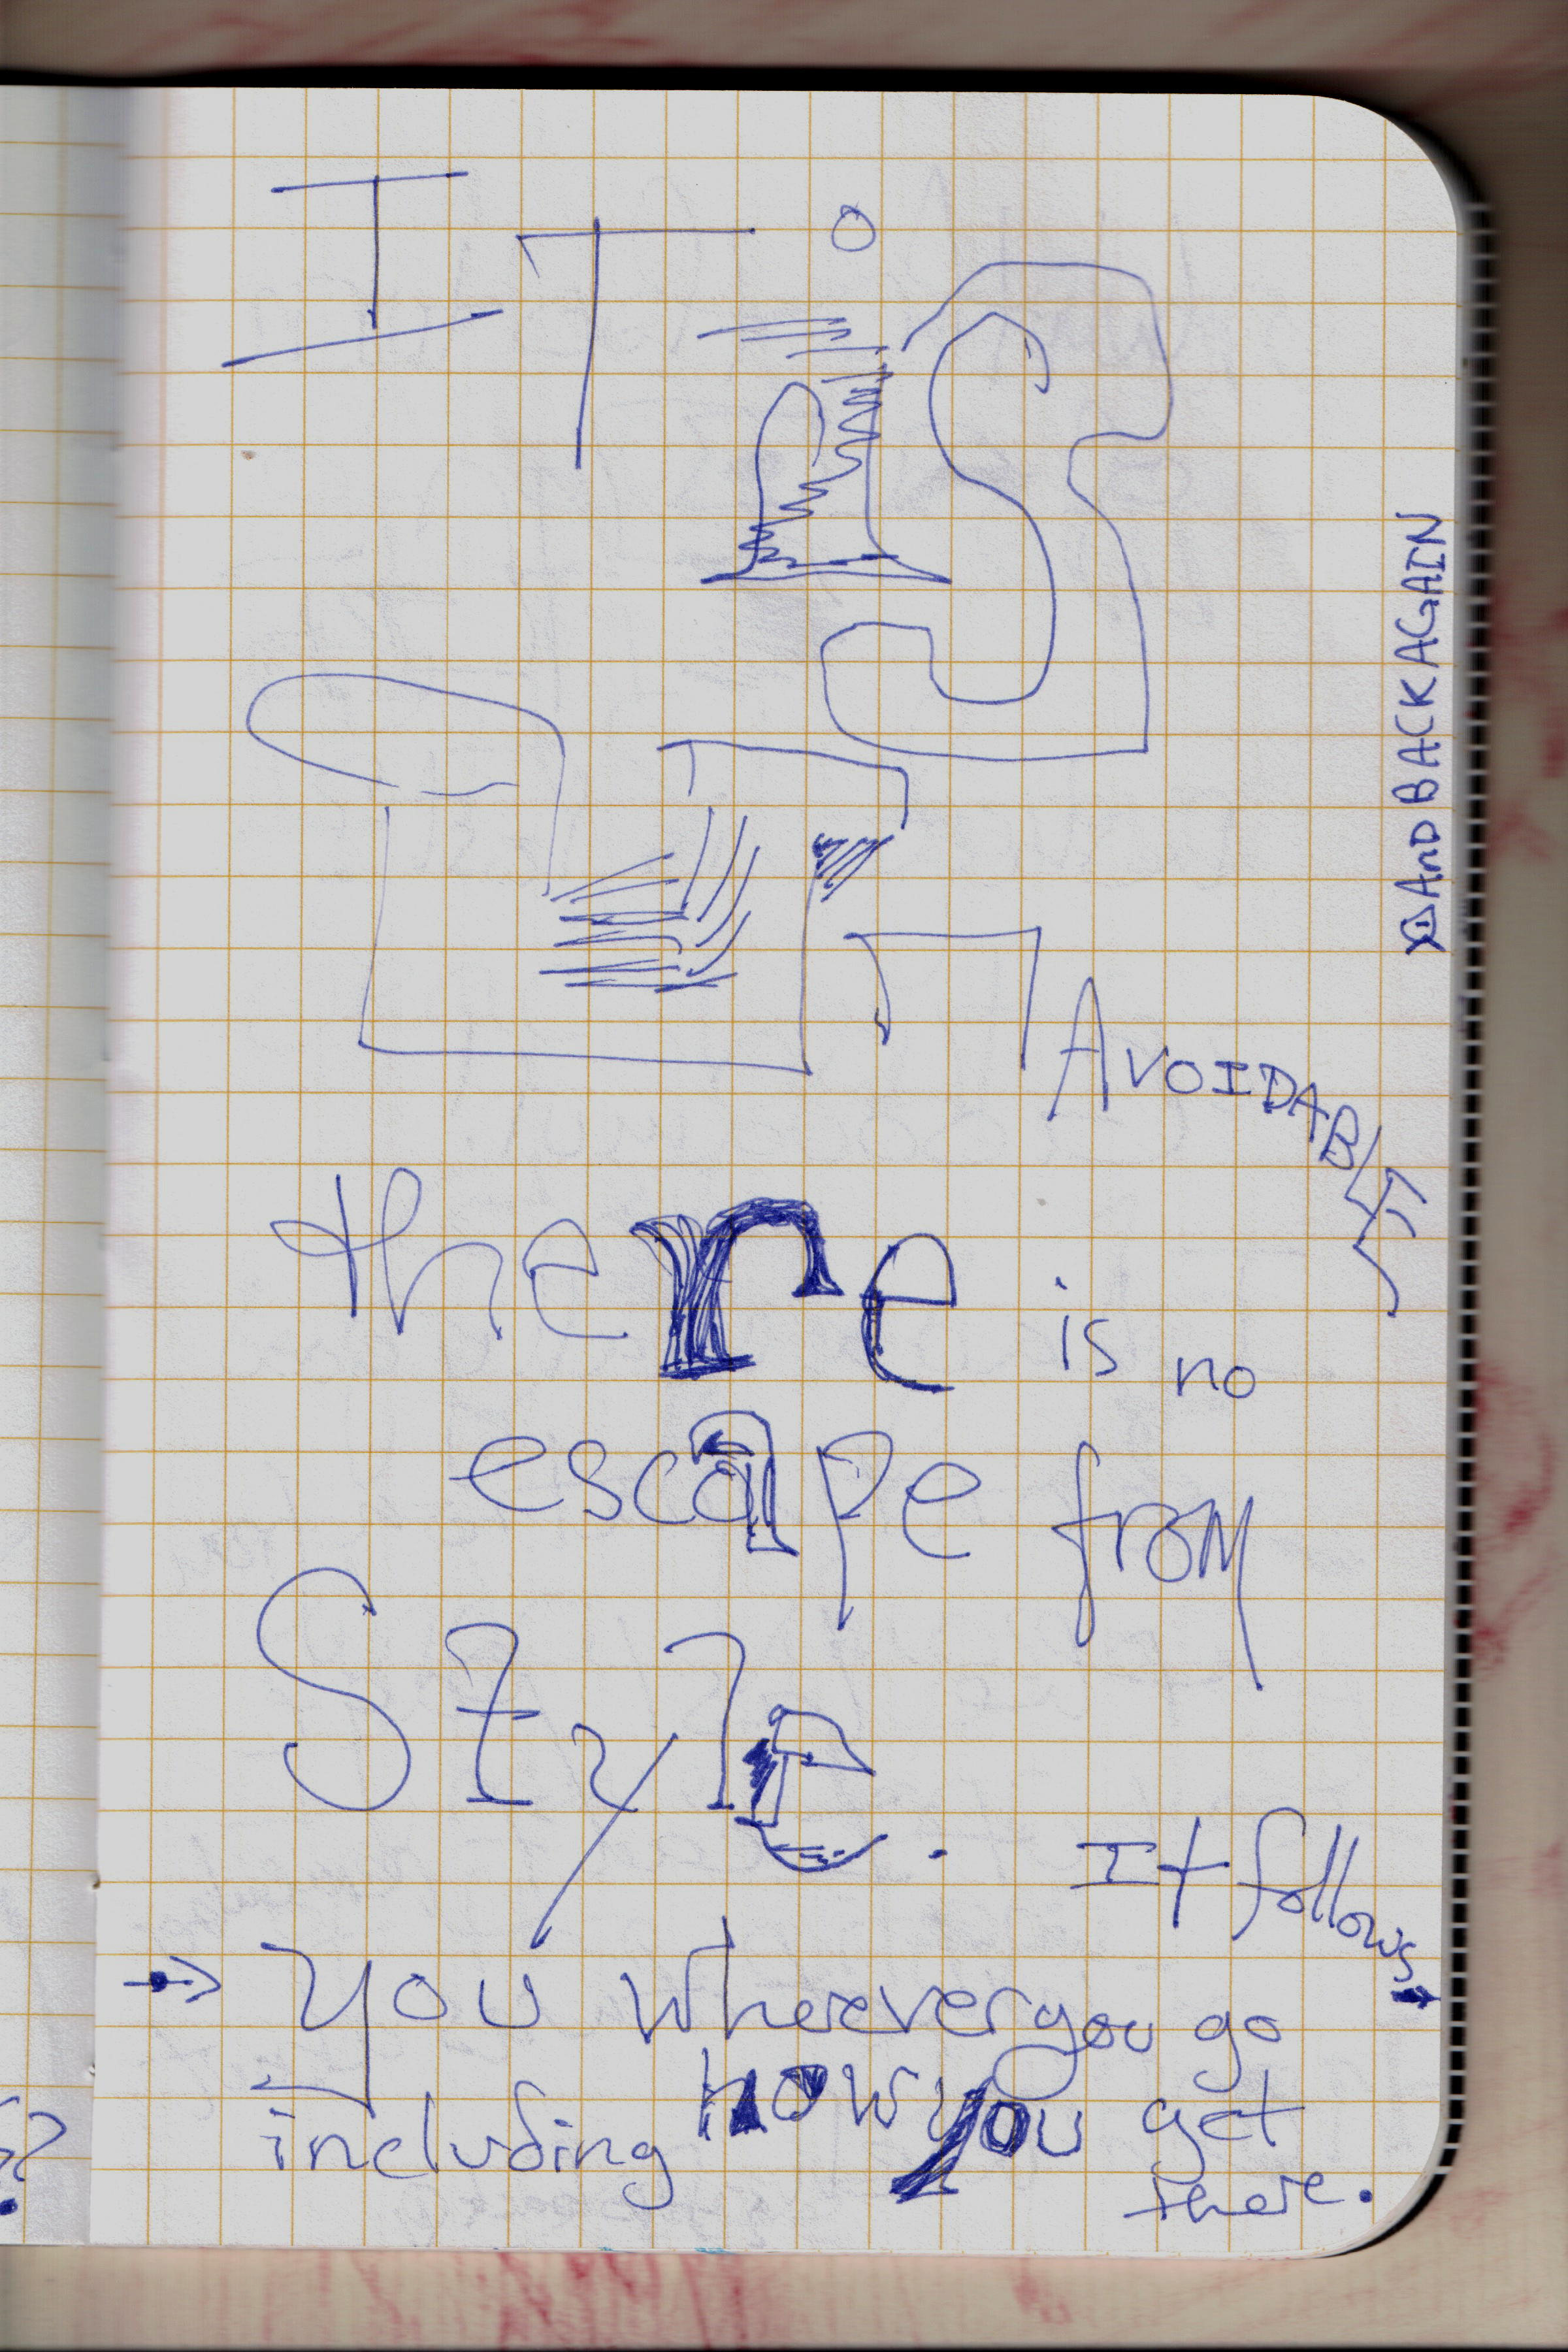 IT is
UnAVOIDABLE
there is no
escape from
Style. It follows
→ you wherever you go
including how you get
there.
AnD BACK AGAIN